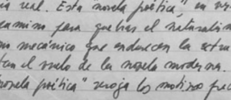 real. Esta novela poética", en
camino para quebrar el naturalismo
mecánico que endurecen la
el suelo de la novela moderna.
novela poética" recoja los motivos